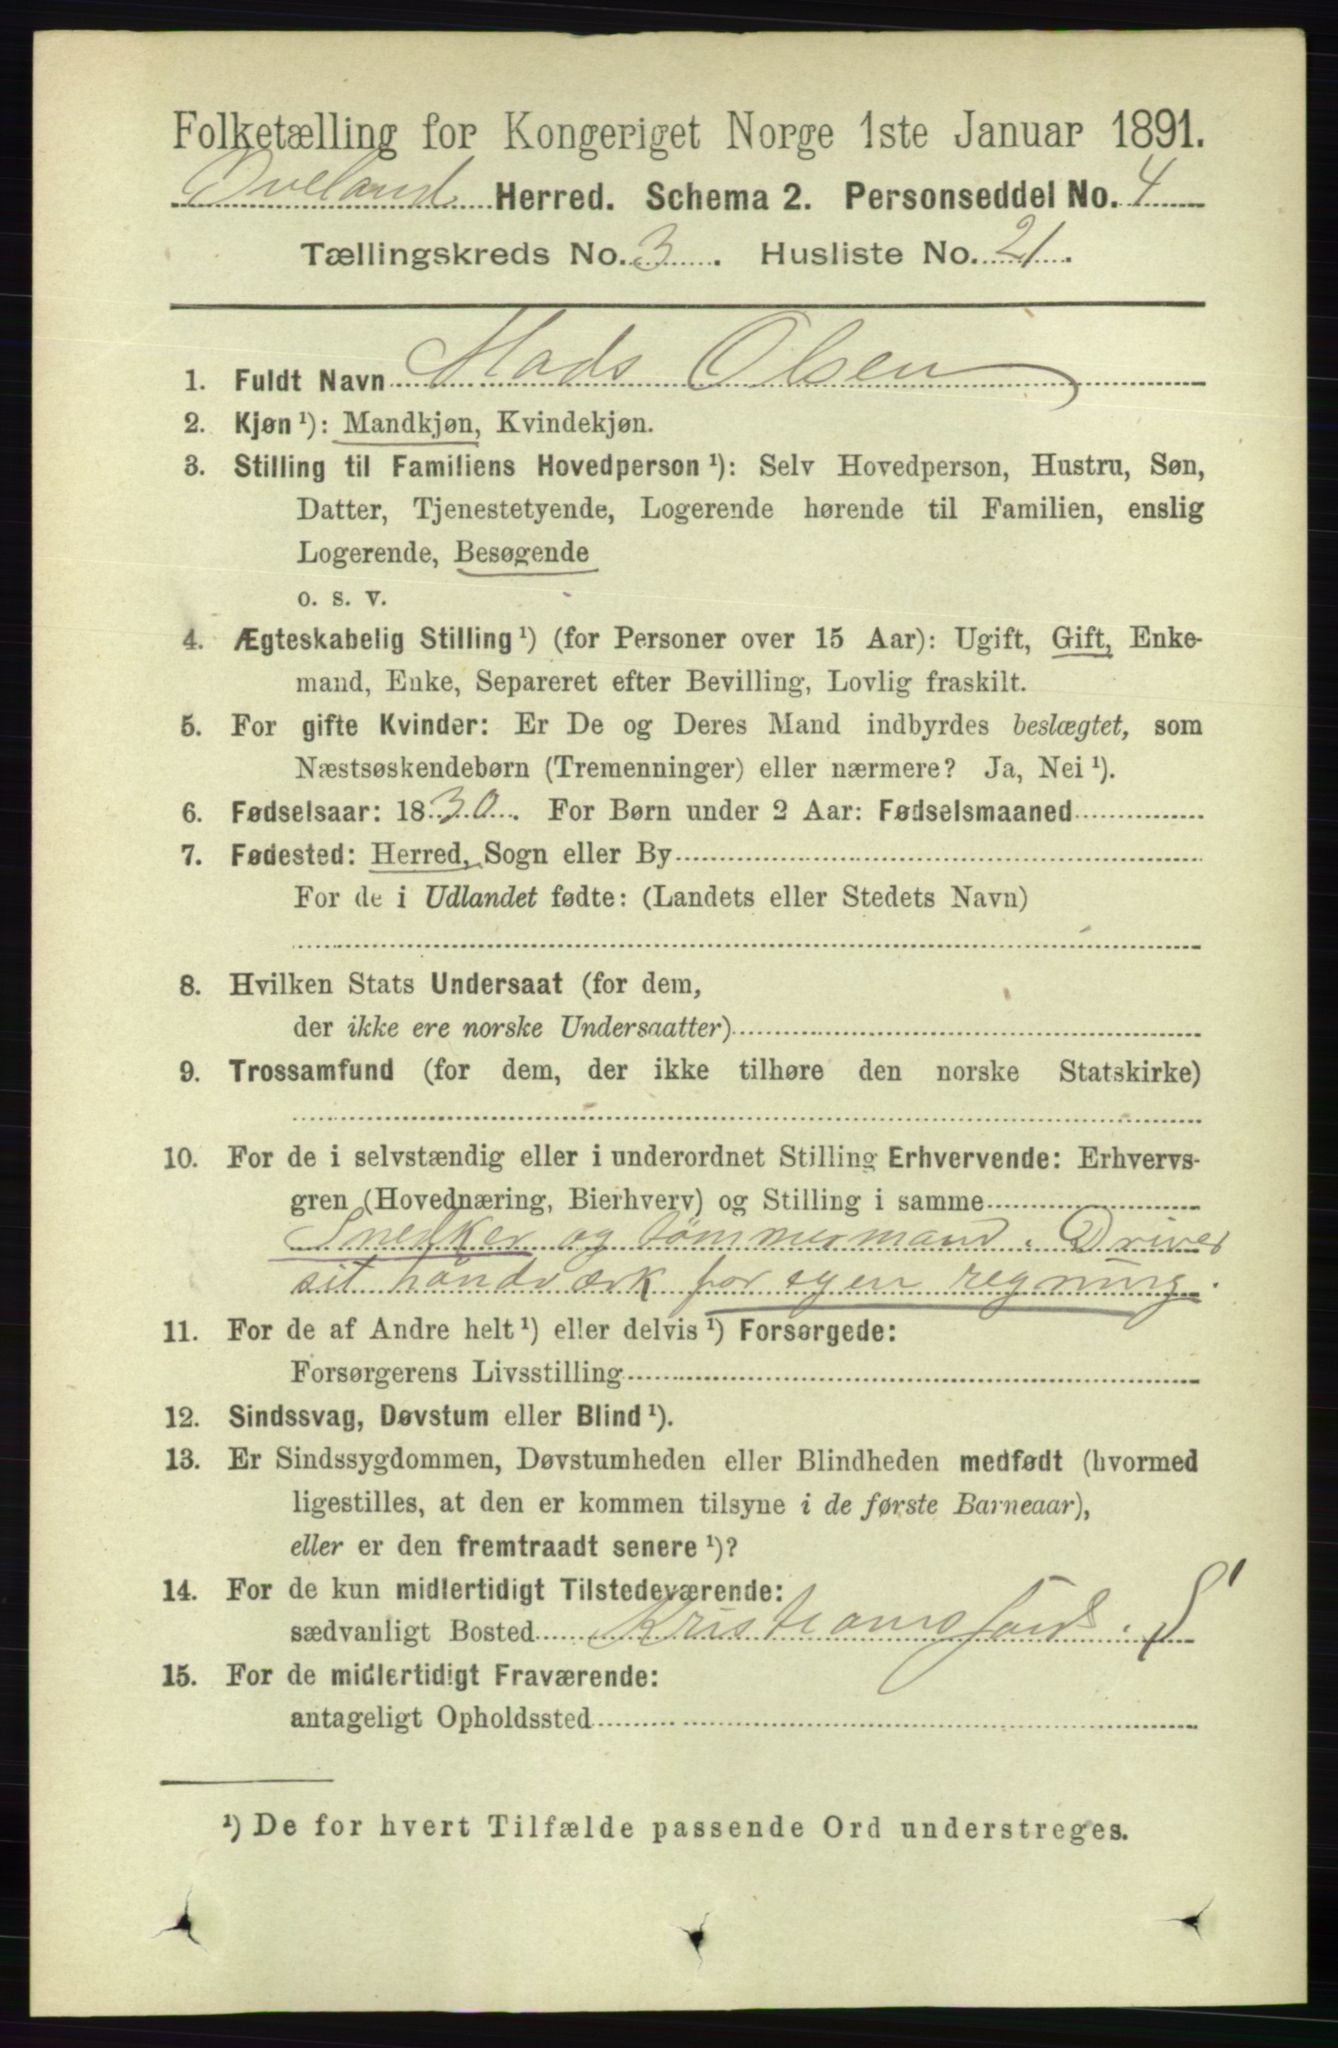 Folketælling for Kongeriget Norge 1ste Januar 1891.
Herred. Schema 2. Personseddel No. 4
Tællingskreds No. 3. Husliste No. 21.
1. Fuldt Navn Mads Olsen
2. Kjøn¹): Mandkjøn, Kvindekjøn.
3. Stilling til Familiens Hovedperson¹): Selv Hovedperson, Hustru, Søn,
Datter, Tjenestetyende, Logerende hørende til Familien, enslig
Logerende, Besøgende
o. s. v.
4. Ægteskabelig Stilling¹) (for Personer over 15 Aar): Ugift, Gift, Enke-
mand, Enke, Separeret efter Bevilling, Lovlig fraskilt.
5. For gifte Kvinder: Er De og Deres Mand indbyrdes beslægtet, som
Næstsøskendebørn (Tremenninger) eller nærmere? Ja, Nei¹).
6. Fødselsaar: 1830. For Børn under 2 Aar: Fødselsmaaned
7. Fødested: Herred, Sogn eller By
For de i Udlandet fødte: (Landets eller Stedets Navn)
8. Hvilken Stats Undersaat (for dem,
der ikke ere norske Undersaatter)
9. Trossamfund (for dem, der ikke tilhøre den norske Statskirke)
10. For de i selvstændig eller i underordnet Stilling Erhvervende: Erhvervs-
gren (Hovednæring, Bierhverv) og Stilling i samme
Snedker og tømmermand. Driver
sit håndværk for egen regning.
11. For de af Andre helt¹) eller delvis¹) Forsørgede:
Forsørgerens Livsstilling
12. Sindssvag, Døvstum eller Blind¹).
13. Er Sindssygdommen, Døvstumheden eller Blindheden medfødt (hvormed
ligestilles, at den er kommen tilsyne i de første Barneaar),
eller er den fremtraadt senere¹)?
14. For de kun midlertidigt Tilstedeværende:
sædvanligt Bosted Kristiansand. S
15. For de midlertidigt Fraværende:
antageligt Opholdssted
¹) De for hvert Tilfælde passende Ord understreges.